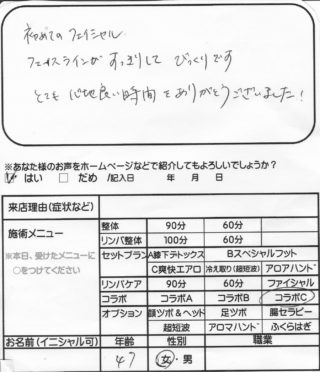 初めてのフェイシャル
フェイスラインがすっきりして びっくりです
とても心地良い時間をありがとうございました！
※あなた様のお声をホームページなどで紹介してもよろしいでしょうか？
☑ はい □ だめ /記入日 年 月 日
来店理由(症状など)
施術メニュー
※本日、受けたメニューに
○をつけてください
整体 90分 60分
リンパ整体 100分 60分
セットプラン A膝下デトックス Bスペシャルフット
C爽快エアロ 冷え取り(超短波) アロアハンド
リンパケア 90分 60分 ファイシャル
コラボ コラボA コラボB コラボC
オプション 顔ツボ&ヘッド 足ツボ 腸セラピー
超短波 アロマハンド ふくらはぎ
お名前(イニシャル可) 年齢 性別 職業
47 女・男